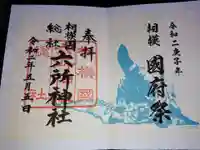 令和二庚子年
相模國府祭
奉拝
相模国
総社
六所神社
令和二年五月五日